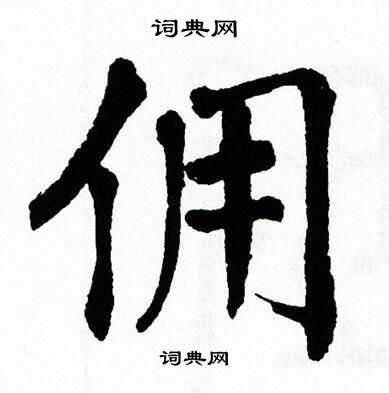 词典网
佣
词典网